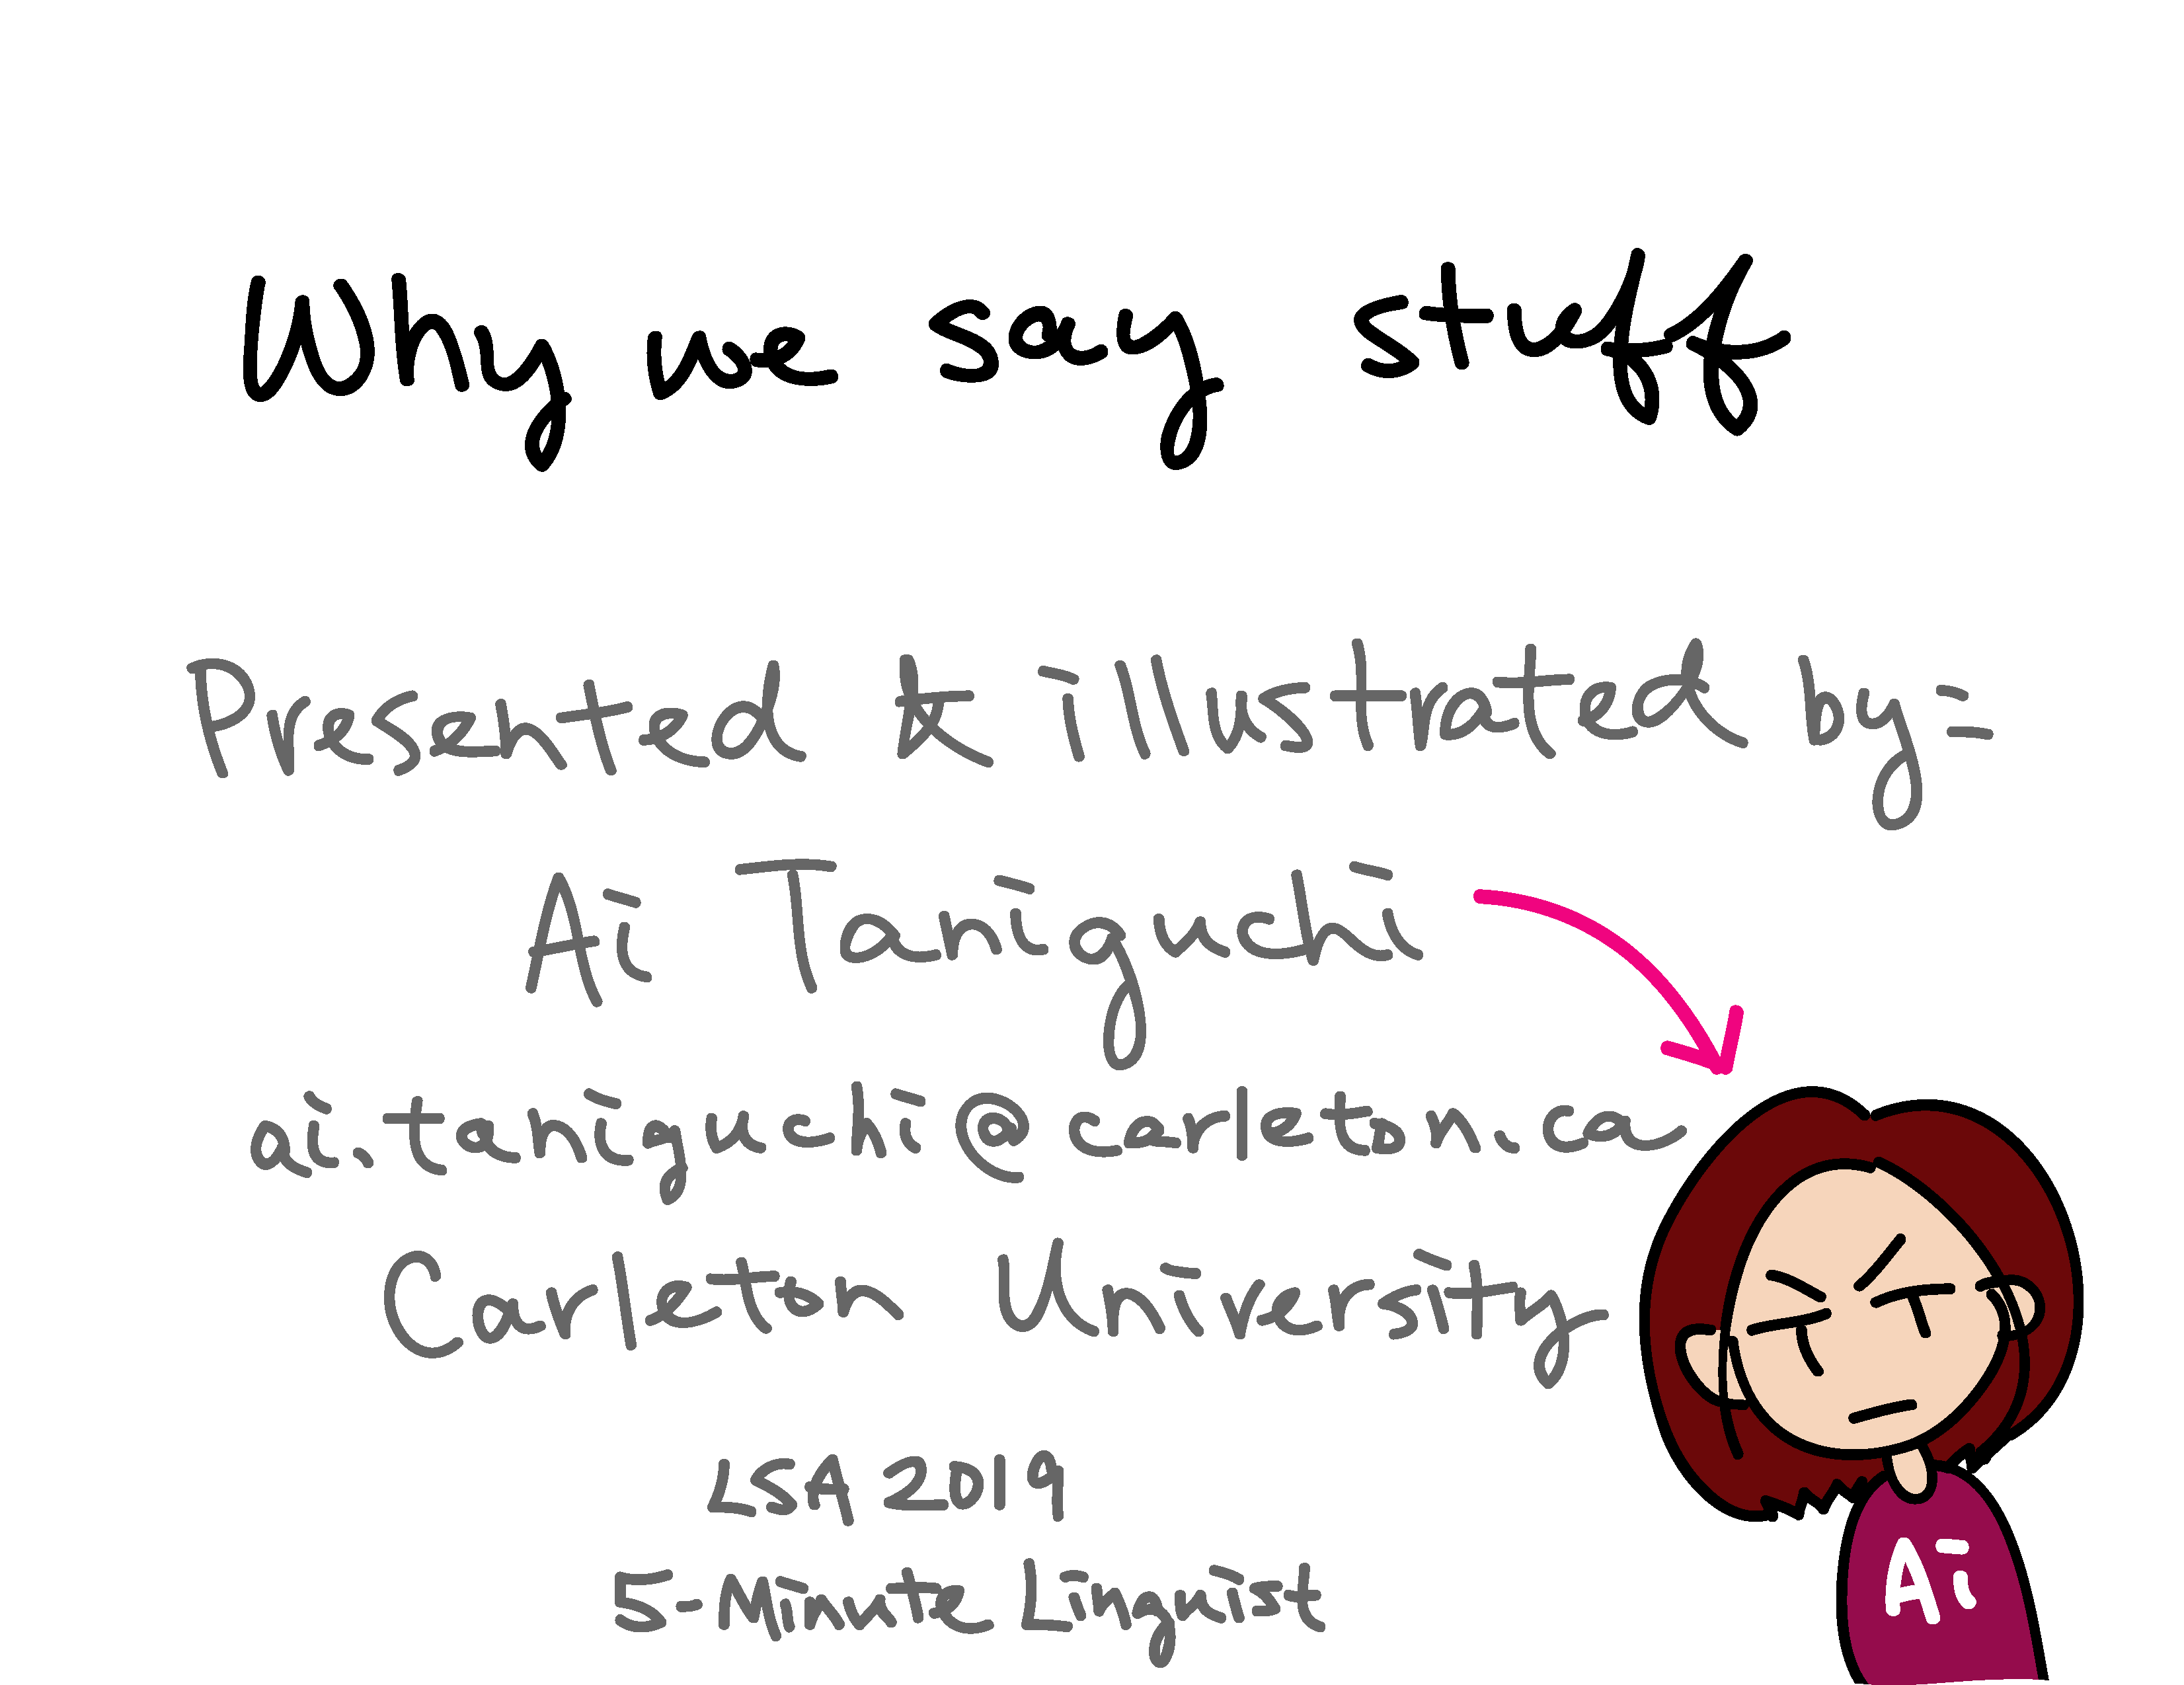 Why we say stuff
Presented & illustrated by:
Ai Taniguchi
ai.taniguchi@carleton.ca
Carleton University
LSA 2019
5-Minute Linguist
Ai